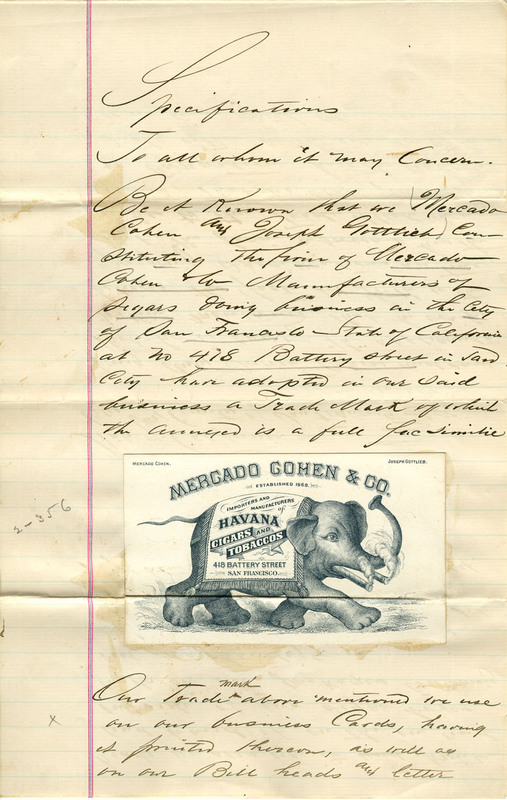 Specifications
To all whom it may Concern.
Be it Known that we (Mercado
Cohen and Joseph Gottlieb) Con-
stituting the firm of Mercado
Cohen & Co Manufacturers of
segars doing business in the City
of San Francisco State of California
at No 418 Battery street in said
City have adopted in our said
business a Trade Mark of which
the annexed is a full fac similie
MERCADO COHEN. JOSEPH GOTTLIEB.
MERCADO COHEN & CO.
ESTABLISHED 1868.
IMPORTERS AND
MANUFACTURERS
of
HAVANA
CIGARS AND
TOBACCOS
418 BATTERY STREET
SAN FRANCISCO.
2-356
Our Trade mark above mentioned we use
x
on our business Cards, having
it printed thereon, as well as
on our Bill heads and letter